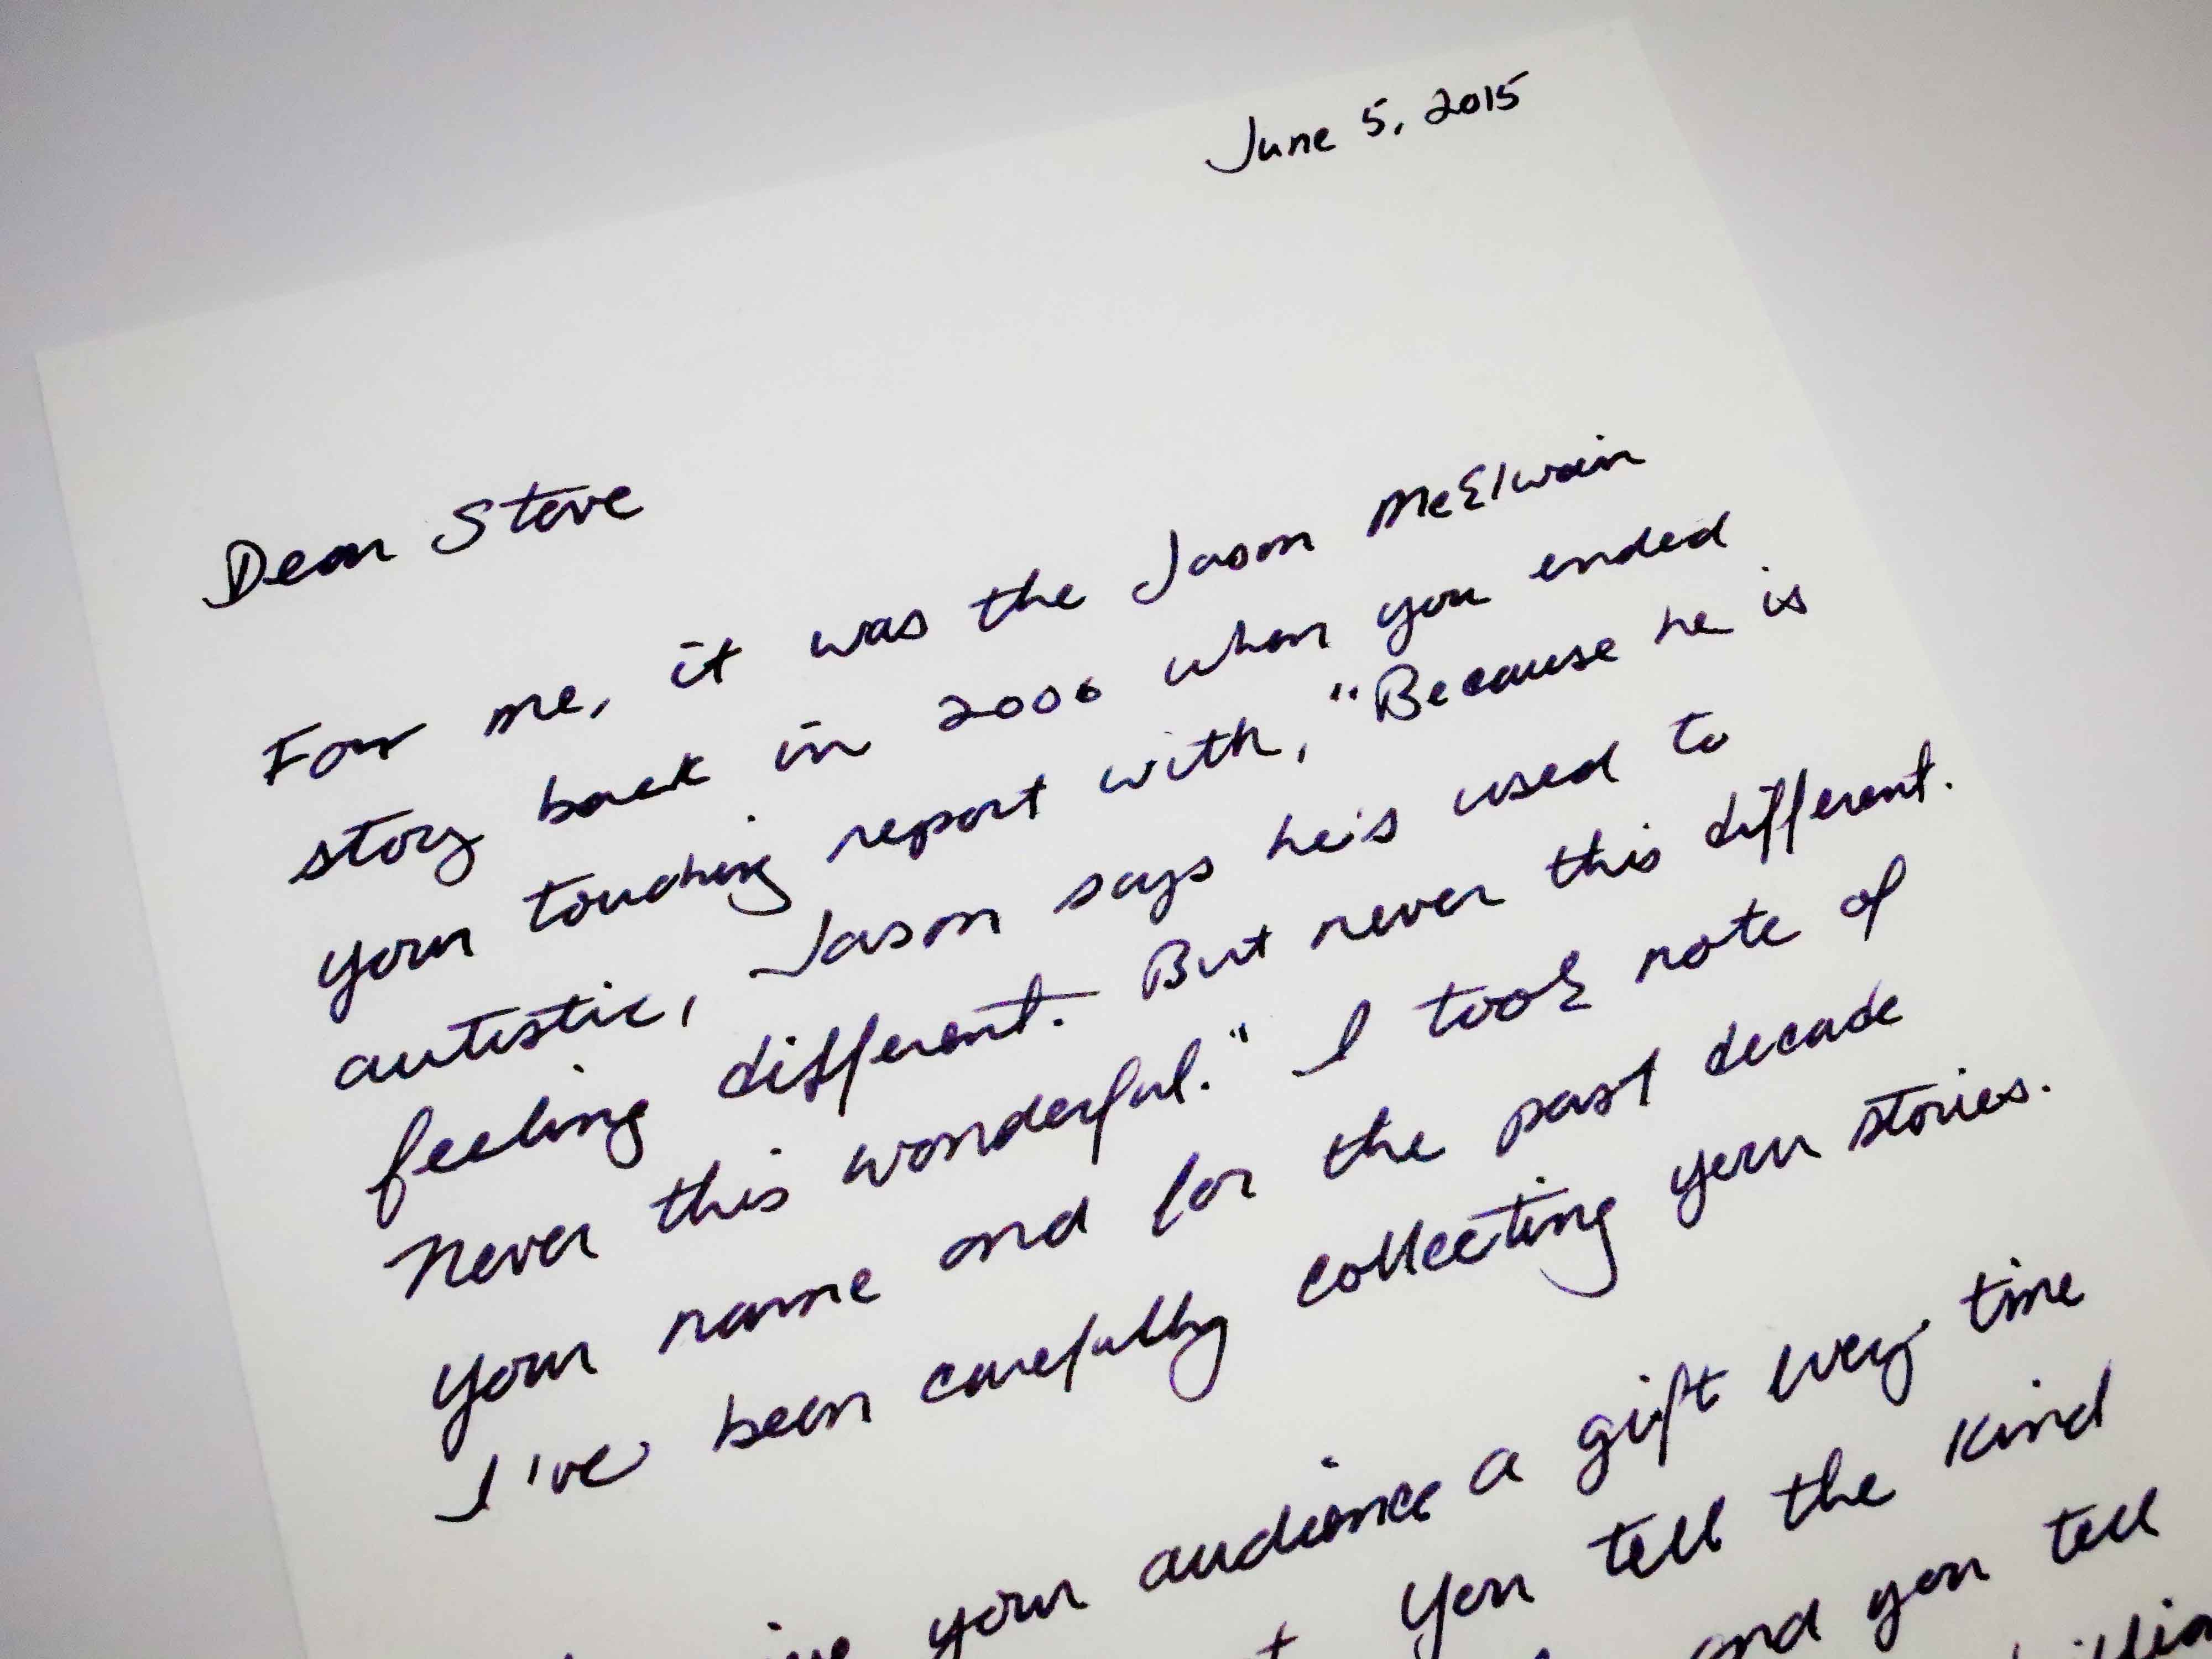 June 5, 2015
Dear Steve
For me, it was the Jason McElwain
story back in 2006 when you ended
your touching report with, "Because he is
autistic, Jason says he's used to
feeling different. But never this different.
Never this wonderful." I took note of
your name and for the past decade
I've been carefully collecting your stories.
your audience a gift every time
You tell the kind
and you tell